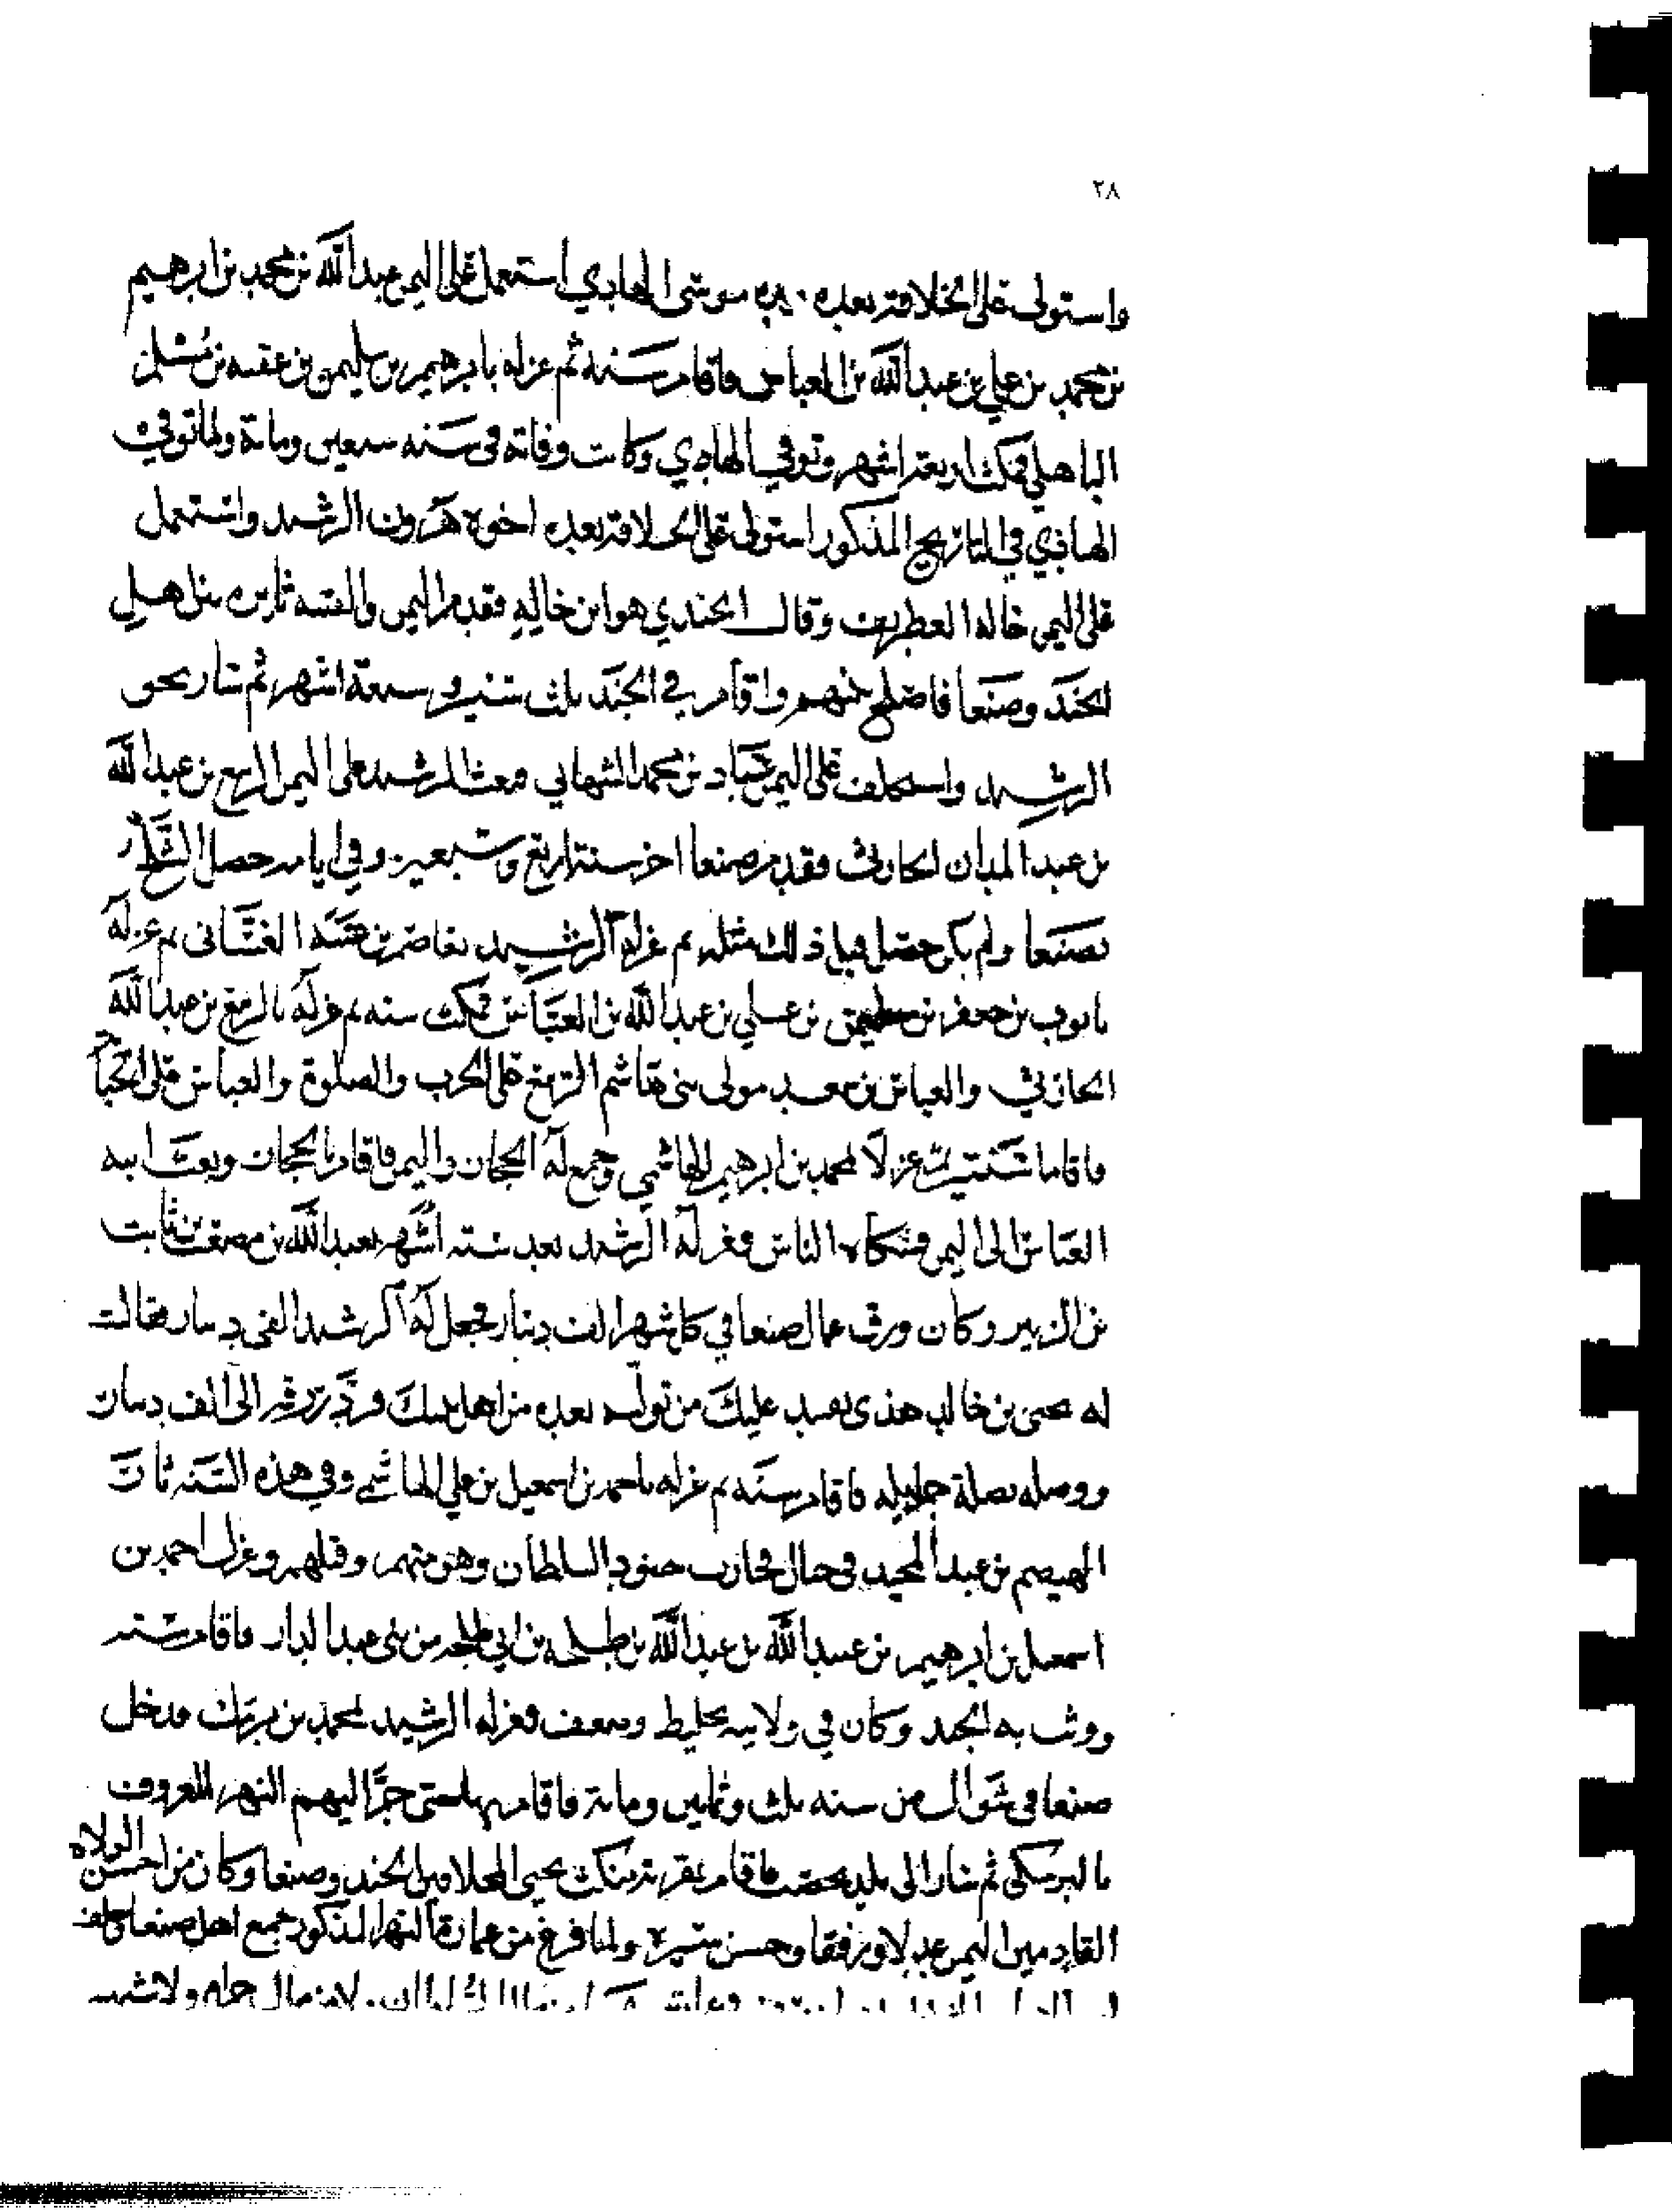 ٢٨
واستولى على الخلافة بعده ابنه موسى الهادي استعمل على اليمن عبدالله بن محمد بن ابرهيم
بن محمد بن علي بن عبدالله بن العباس فاقام سنه ثم عزله بابرهيم بن سليمن بن عقسه بن مسلم
الباهلي فمكث اربعة اشهر وتوفي الهادي وكانت وفاته في سنه سبعين وماىة ولما توفي
الهادي في التاريخ المذكور استولى على الخلافة بعده اخوه هرون الرشيد واستعمل
على اليمن خاله الغطريف وقال الجندي هو ابن خاله فقدم اليمن والفتنه ثايره بين اهل
الجند وصنعا فاصلح بينهم واقام في الجند ثلث سنين وسبعة اشهر ثم سار نحو
الرشيد واستخلف على اليمن عباد بن محمد الشهابي وبعث الرشيد على اليمن الربيع بن عبدالله
بن عبد المدان الحارثي فقدم صنعا اخر سنة اربع وسبعين وفي ايامه حصل الثلج
بصنعا ولم يكن حصل قبل ذلك مثله ثم عزله الرشيد بعاصم بن عتبه الغساني ثم عزله
بايوب بن جعفر بن سليمن بن علي بن عبدالله بن العباس فمكث سنه ثم عزله بالربيع بن عبدالله
الحارثي والعباس بن سعيد مولى بني هاشم الربيع على الحرب والصلوة والعباس على الجبا
فاقاما سنتين ثم عزلا بمحمد بن ابرهيم الهاشمي وجمع له الحجاز واليمن فاقام بالحجاز وبعث ابنه
العباس الى اليمن فشكاه الناس فعزله الرشيد بعد سته اشهر بعبدالله بن مصعب بن ثابت
بن الزبير وكان ورق عمال صنعا في كل شهر الف دينار فجعل له الرشيد الفي دينار فقال
له يحيى بن خالد هذى يفسد عليك من توليه بعده من اهل بيتك فرد رزقه الى الف دينار
ووصله بصلة جليله فاقام سنه ثم عزله باحمد بن اسمعيل بن علي الهاشمي وفي هذه السنه ثار
الهيصم بن عبد المجيد في جبال يحارب جنود السلطان وهزمهم وقتلهم وعزل احمد بن
اسمعيل بن ابرهيم بن عبيدالله بن عبدالله بن طلحه بن ابي طلحه من بني عبد الدار فاقام سنه
ووثب به الجند وكان في ولايته تخليط وضعف فعزله الرشيد بمحمد بن برمك فدخل
صنعا في شوال من سنه ثلث وثمانين وماىة فاقام بها حتى جر اليهم النهر المعروف
بالبرمكي ثم سار الى بلد يحصب فاقام بقرية منكث بحيى المخلافين الجند وصنعا وكان من احسن الولاه
القادمين اليمن عدلا ورفقا وحسن سيره ولما فرغ من عمارة النهر المذكور جمع اهل صنعا وحلف